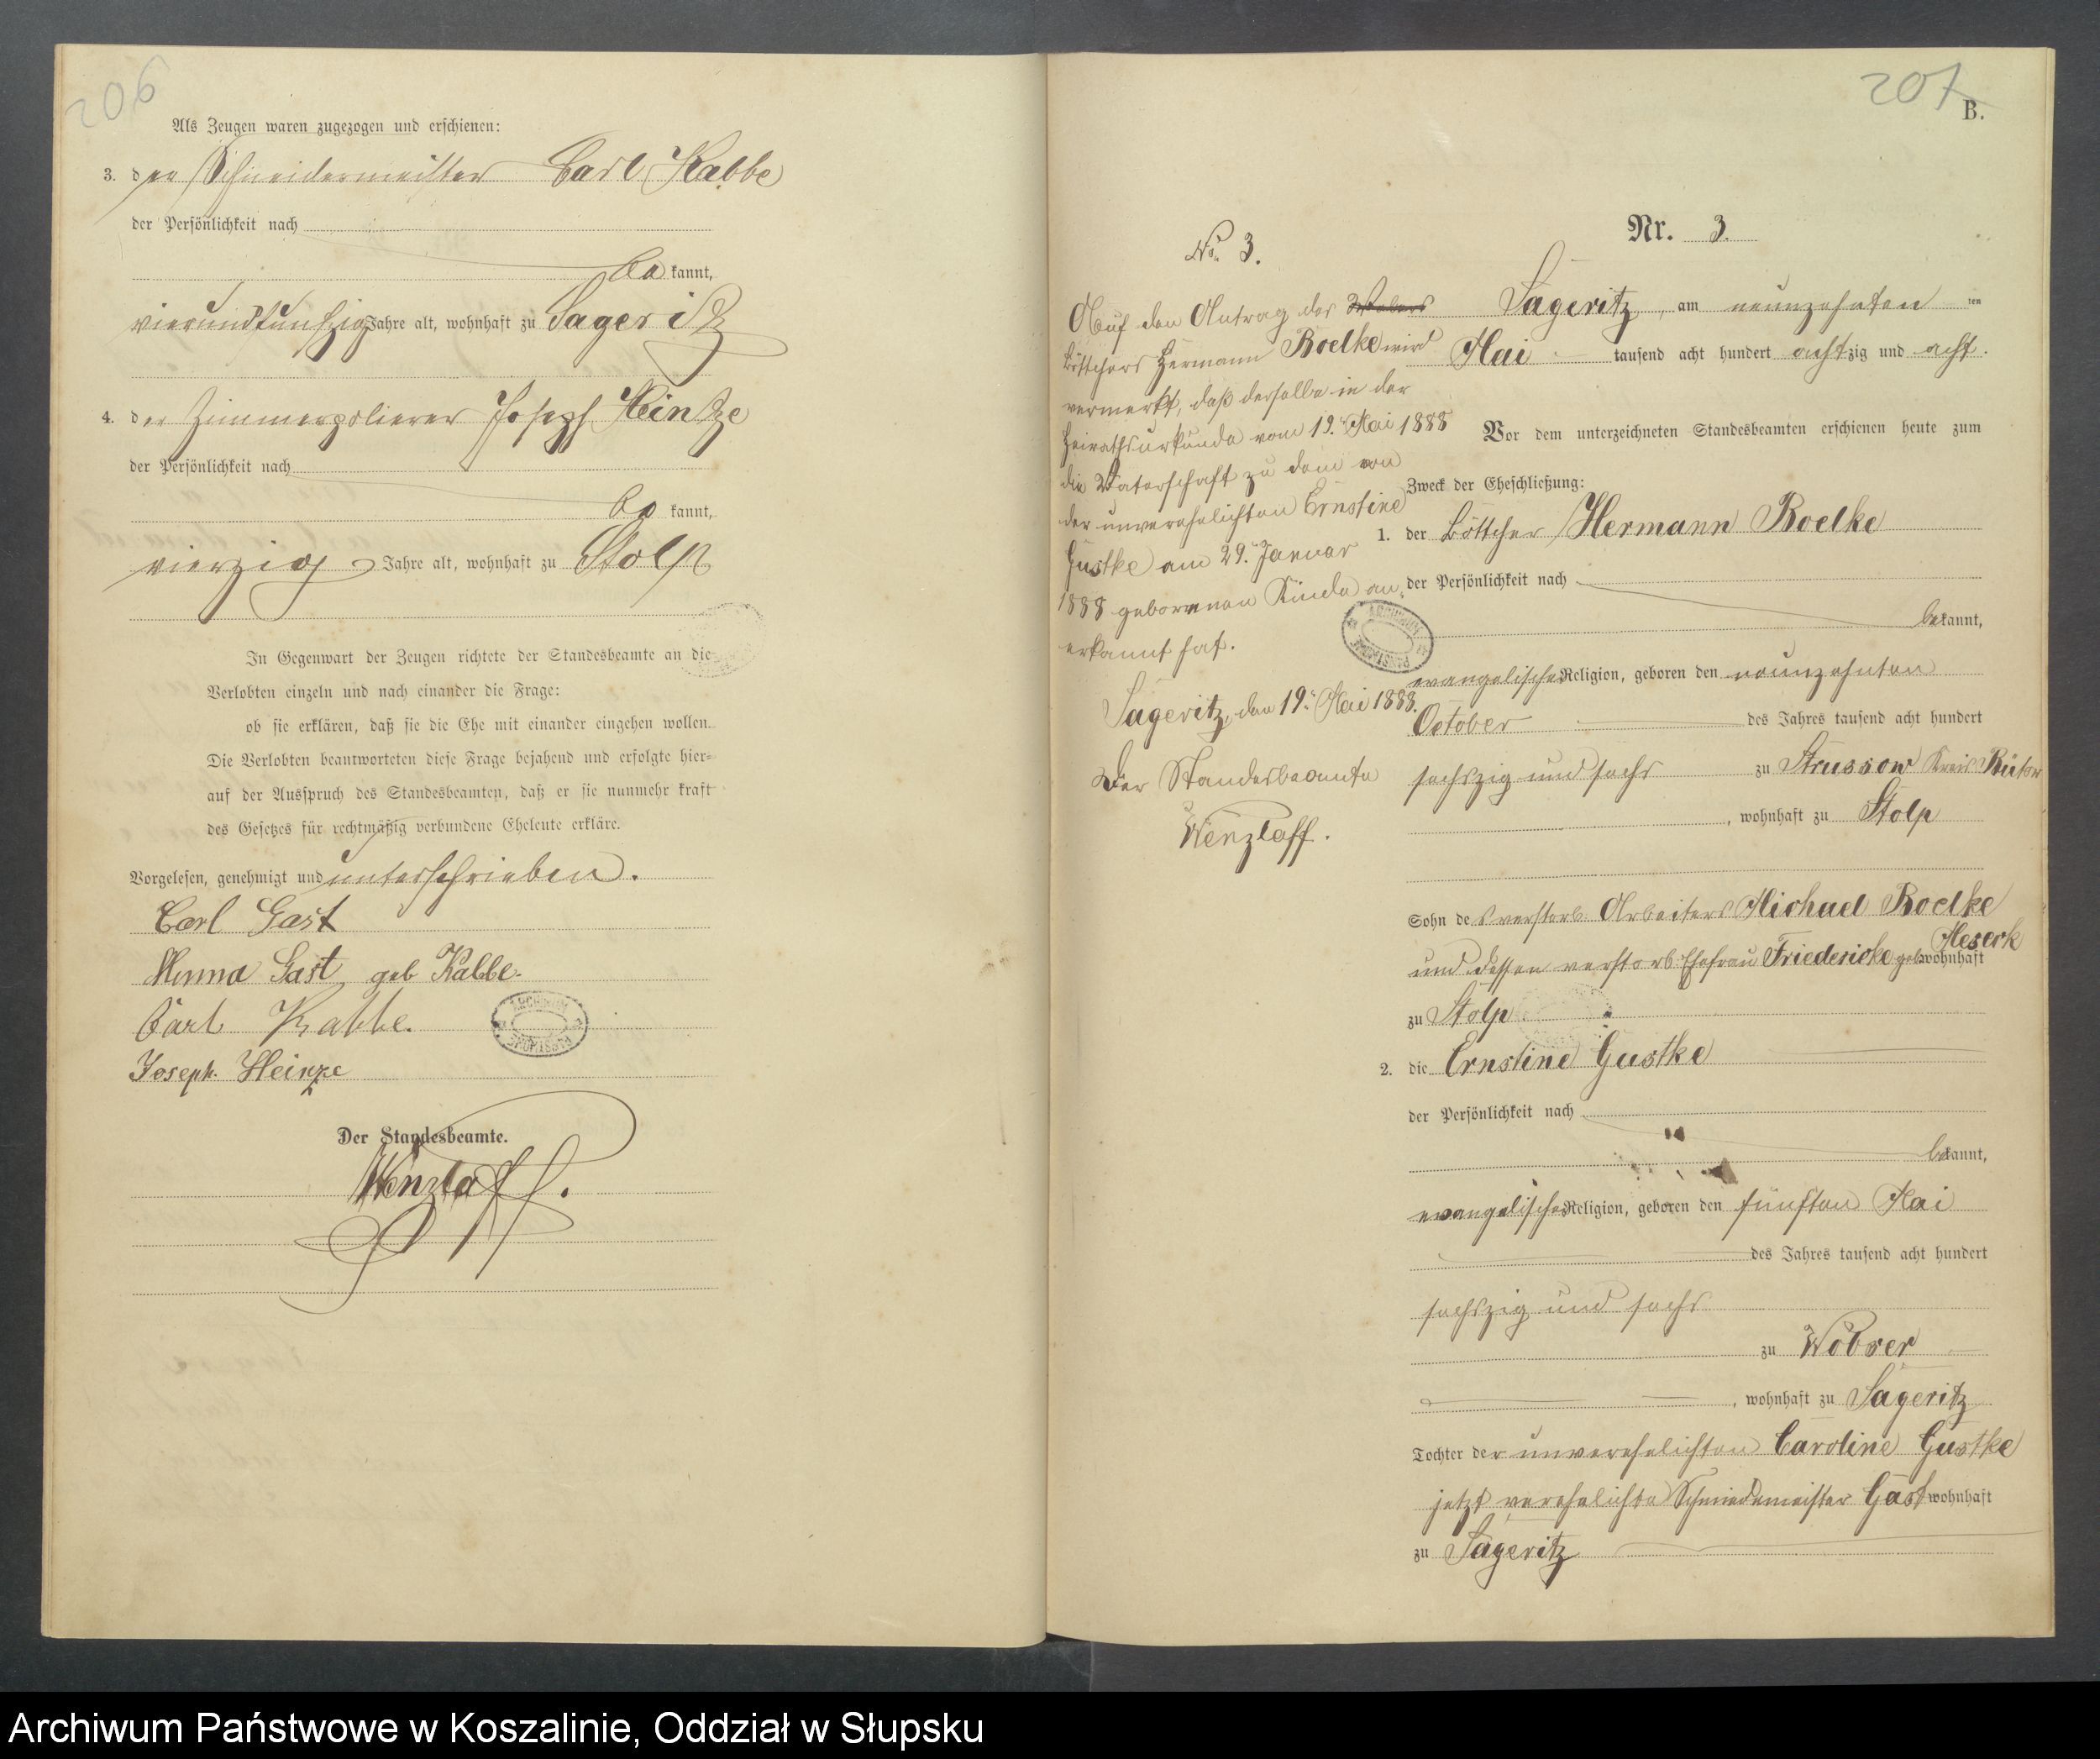 206
Als Zeugen waren zugezogen und erschienen:
3. der Schneidermeister Carl Kabbe
der Persönlichkeit nach
be kannt,
vierundfunfzig Jahre alt, wohnhaft zu Sageritz
4. der Zimmerpolierer Joseph Heintze
der Persönlichkeit nach
be kannt,
vierzig Jahre alt, wohnhaft zu Stolp
In Gegenwart der Zeugen richtete der Standesbeamte an die
Verlobten einzeln und nach einander die Frage:
ob sie erklären, daß sie die Ehe mit einander eingehen wollen.
Die Verlobten beantworteten diese Frage bejahend und erfolgte hier-
auf der Ausspruch des Standesbeamten, daß er sie nunmehr kraft
des Gesetzes für rechtmäßig verbundene Eheleute erkläre.
Vorgelesen, genehmigt und unterschrieben.
Carl Gast
Minna Gast geb Kabbe.
Carl Kabbe.
Joseph Heinze
Der Standesbeamte.
Wenzlaff.
207
B.
No. 3.
Auf den Antrag des
Böttchers Hermann Roelke wird
vermerkt, daß derselbe in der
Heirathsurkunde vom 19. Mai 1888
die Vaterschaft zu dem von
der unverehelichten Ernstine
Gustke am 29. Januar
1888 geborenen Kinde an-
erkannt hat.
Sageritz, den 19. Mai 1888.
Der Standesbeamte
Wenzlaff.
Nr. 3.
Sageritz, am neunzehnten ten
Mai tausend acht hundert achtzig und acht.
Vor dem unterzeichneten Standesbeamten erschienen heute zum
Zweck der Eheschließung:
1. der Böttcher Hermann Roelke
der Persönlichkeit nach
bekannt,
evangelischer Religion, geboren den neunzehnten
October des Jahres tausend acht hundert
sechszig und sechs zu Strussow Kreis Bütow
, wohnhaft zu Stolp
Sohn des verstorb. Arbeiters Michael Roelke
und dessen verstorb. Ehefrau Friedericke geb. Meserk wohnhaft
zu Stolp
2. die Ernstine Gustke
der Persönlichkeit nach
bekannt,
evangelischer Religion, geboren den fünften Mai
des Jahres tausend acht hundert
sechszig und sechs
zu Wobser
, wohnhaft zu Sageritz
Tochter der unverehelichten Caroline Gustke
jetzt verehelichte Schmiedemeister Gast wohnhaft
zu Sageritz
Archiwum Państwowe w Koszalinie, Oddział w Słupsku